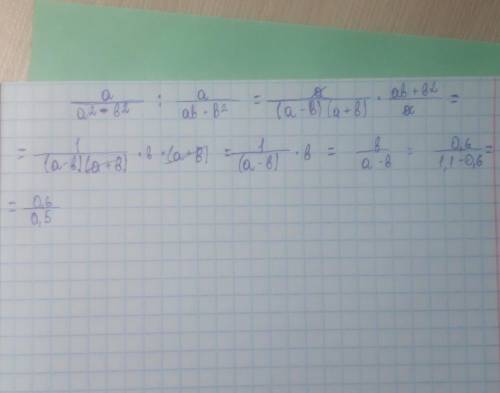 a/(a² - b²) : a/(ab - b²) = a/((a-b)(a+b)) · (ab+b²)/a =
= 1/((a-b)(a+b)) · b · (a+b) = 1/(a-b) · b = b/(a-b) = 0,6/(1,1-0,6) =
= 0,6/0,5